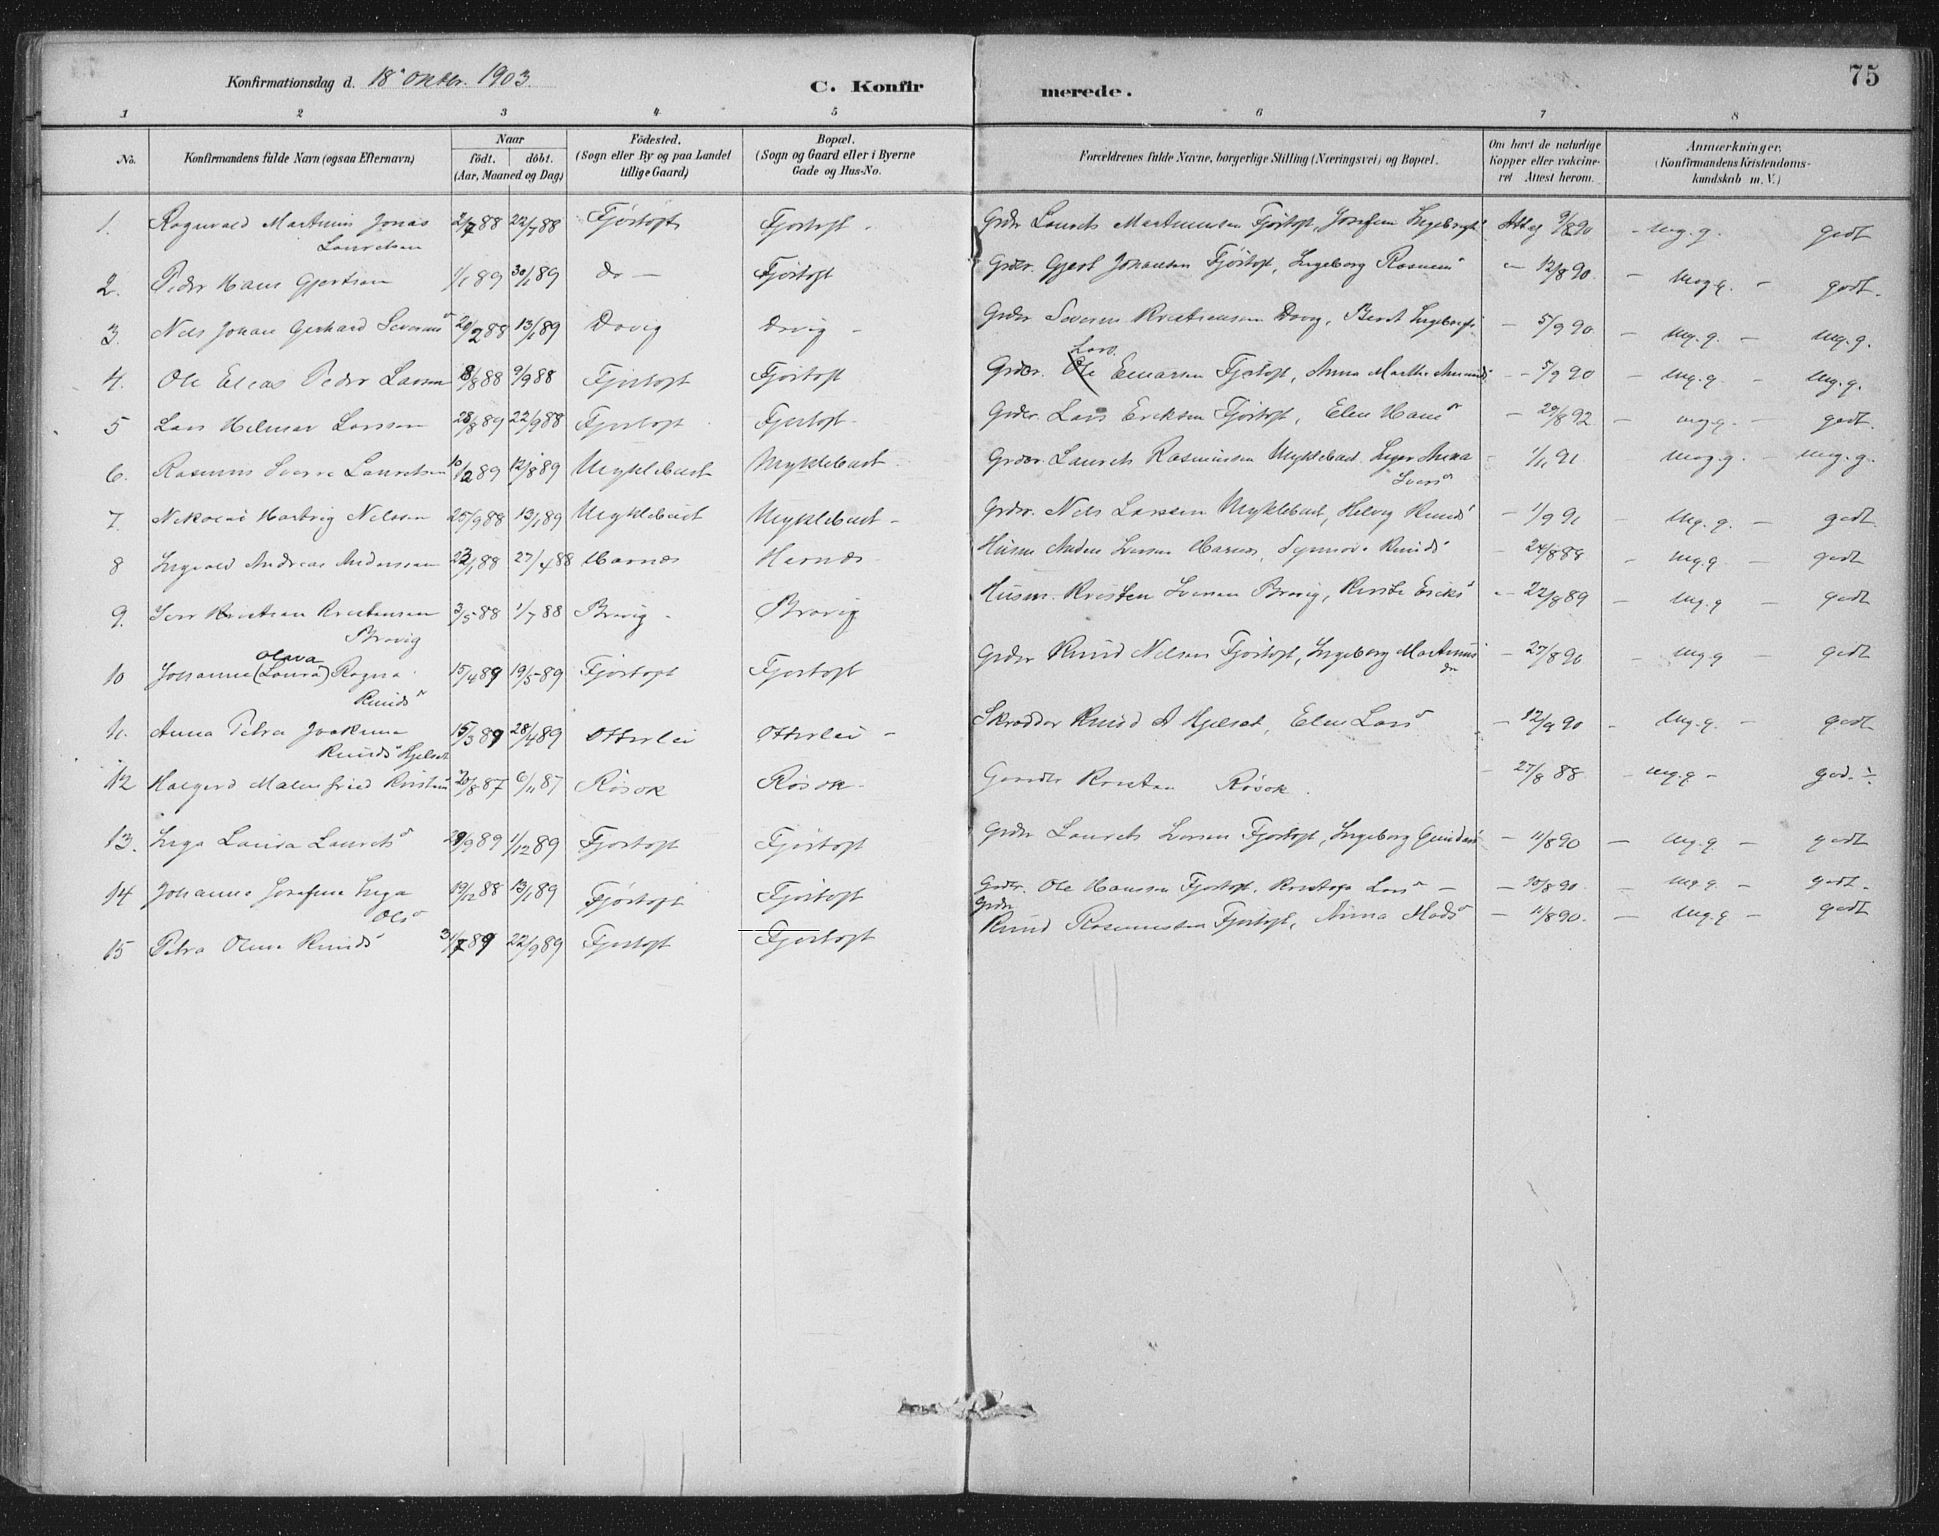 75
Konfirmationsdag d. 18 Oktbr. 1903.
C. Konfirmerede.
1 2 3 4 5 6 7 8
No.
Konfirmandens fulde Navn (ogsaa Efternavn)
Naar
födt. döbt.
(Aar, Maaned og Dag)
Födested.
(Sogn eller By og paa Landet
tillige Gaard)
Bopæl.
(Sogn og Gaard eller i Byerne
Gade og Hus-No.
Forældrenes fulde Navne, borgerlige Stilling (Næringsvei) og Bopæl.
Om havt de naturlige
Kopper eller vakcine-
ret Attest herom.
Anmærkninger.
(Konfirmandens Kristendoms-
kundskab m. V.)
1. Ragnvald Martinus Jonas 2/7 88 22/7 88 Fjörtoft Fjortoft Grdr Laurits Martinussen Fjörtoft, Josefine Ingebrigt Att af 9/8 90 mg. g. godt
Lauritsen
2. Peder Hans Gjertsen 1/1 89 30/1 89 do — Fjörtoft Grdbr. Gjert Johansen Fjörtoft, Ingeborg Rasmus - 12/8 90. - mg g. - godt.
3. Nils Johan Gerhard Severins 13/1 89 Dovig Drvig Grdbr Severin Kristiansen - 5/9 90 - mg. g. - mg. g.
Lars
4. Ole Elias Peder Larsen 8/8 88 9/9 88 Fjortoft Fjörtoft Grdbr. Ole Einarsen Fjortoft, Anna Marthe - 5/9 90 - mg. g. - mg. g.
5 Lars Hilmar Larssen 28/8 89 22/9 88 Fjortoft Fjortoft Grdbr. Lars Eriksen Fjörtoft, Elen Hans - 29/8 92 - mg g. - godt.
6. Rasmus Sverre Lauritsen 10/2 89 12/8 89 Myklebust Myklebust Grdbr. Laurits Rasmussen Myklebust. Inger Anna - 1/1 91 mg. g. - mg. g.
Ivers
7. Nikolai Hartvig Nilsen 25/9 88 13/1 89 Myklebust Myklebust - Grdbr. Nils Larssen Myklebust, Helvig Knuds - 1/9 91 - mg. g. - godt
8 Ingvald Andreas Anderssen 27/4 88 Harnæs Harnæs Husm Anders Iversen Harnes, Synnöve Knuds - 24/8 88 - mg. g. - godt
9. Iver Kristian Kristensen 3/5 88 1/7 88 Brovig - Brovig Husm. Kristen Iversen Brovig, Kirsti Eriks - 22/8 89 - mg. g - godt
Brovig
Olava
10 Johanne (Laura) Ragna 15/4 89 19/5 89 Fjörtoft Fjortoft Grdbr Knud Nilsen Fjörtoft, Ingeborg Martinus - 27/8 90 - mg g - godt
Knuds
dr
11. Anna Petra Joakima 15/3 89 28/4 89 Otterlei Otterlei - Skrædder Knud A Hjelset, Elen Lars - 12/9 90 - mg. g. - godt
Knuds Hjelset
12 Halgerd Malenfried Kristens 20/8 87 6/11 87 Rösok Rösok - Gaardbr Kristen Rösok. - 27/8 88 - mg. g - god. ÷
13. Inga Lovisa Laurits 29/9 89 1/12 89 Fjörtoft Fjörtoft Grdbr Laurits Iversen Fjortoft, Ingeborg - 11/8 90 - mg. g. - godt
14 Johanne Josefine Inga 19/12 88 13/1 89 Fjörtoft Fjörtoft Grdbr. Ole Hanssen Fjortoft, Lars - - 30/8 90. - mg. g. - godt.
Ols
Grdbr
15 Petra Oline Knuds 31/7 89 22/9 89 Fjortoft Fjortoft Knud Rasmussen Fjortoft, Anna Mads - 11/8 90. - mg. g - godt